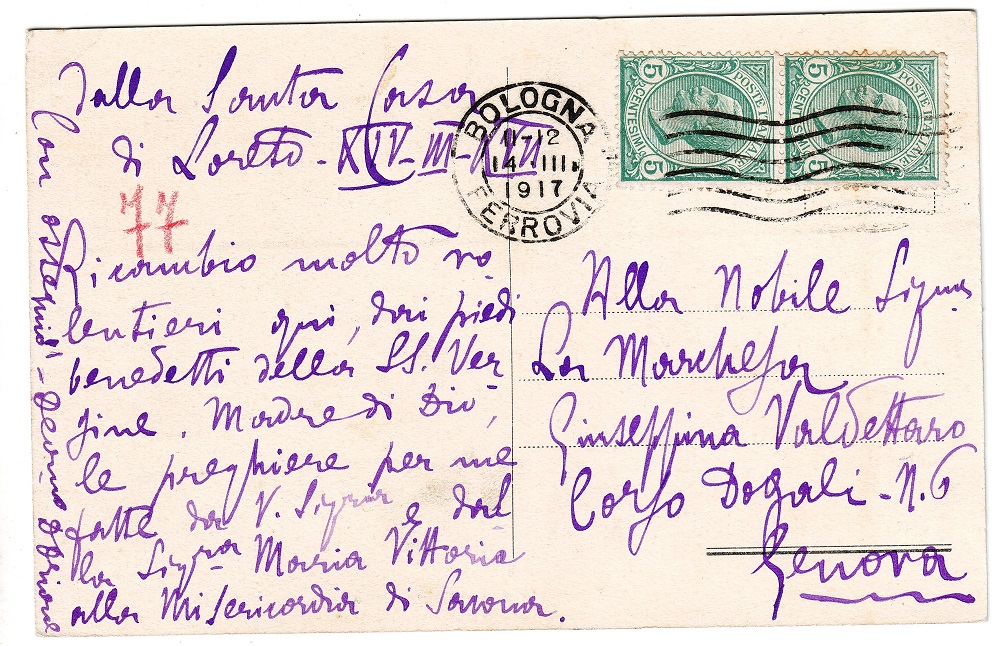 Dalla Santa Casa
di Loreto - XIV-III-XVII
77
Ricambio molto vo-
lentieri qui, dai piedi
benedetti della SS. Ver
gine, Madre di Dio,
le preghiere per me
fatte da V. Sigria e dal
la Sigra Maria Vittoria
alla Misericordia di Savona.
Con ossequio -
BOLOGNA
11-12
14 III
1917
FERROVIA
5 POSTE ITALIANE 5
CENTESIMI
5 POSTE ITALIANE 5
CENTESIMI
Alla Nobile Sigra
La Marchesa
Giuseppina Valdettaro
Corso Dogali - N. 6
Genova